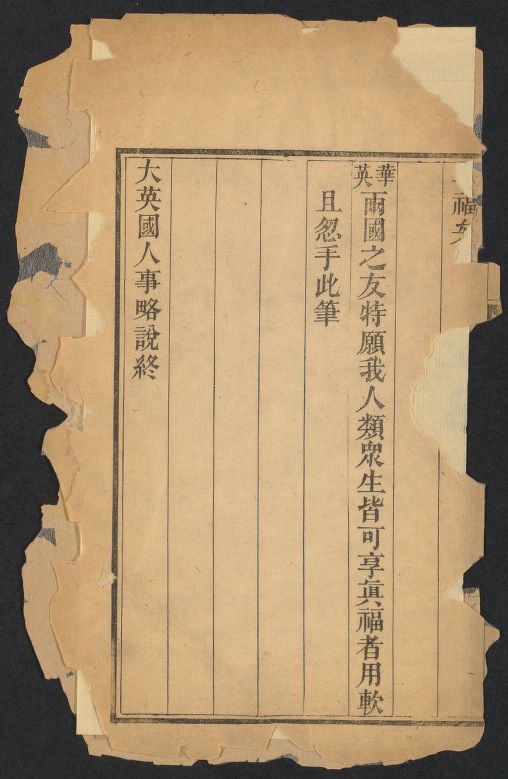 福
華英兩國之友特願我人類衆生皆可享眞福者用軟
且忽手此筆
大英國人事略說終